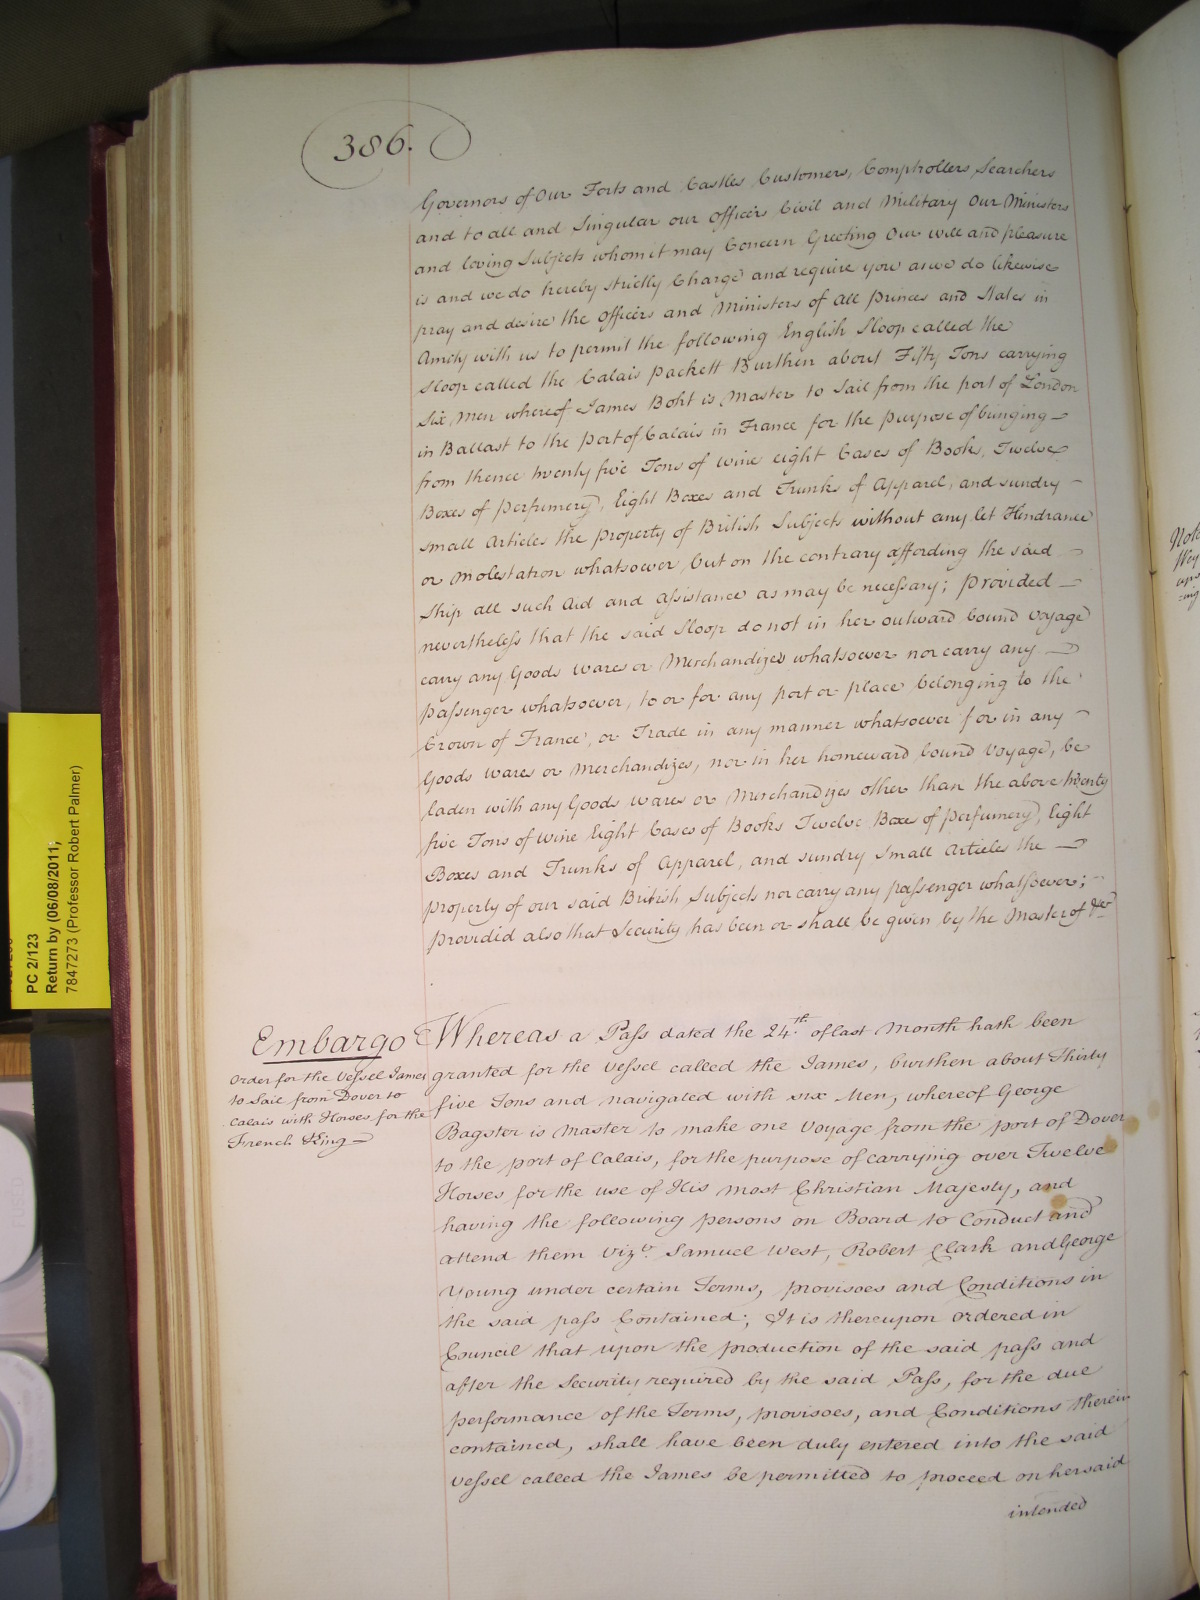 386.
Governors of Our Forts and Castles Customers, Comptrollers Searchers
and to all and Singular our officers Civil and Military Our Ministers
and loving Subjects whom it may Concern Greeting Our will and pleasure
is and we do hereby strictly Charge and require you as we do likewise
pray and desire the officers and Ministers of all Princes and States in
Amity with us to permit the following English Sloop called the
Sloop called the Calais Packett Burthen about Fifty Tons carrying
Six Men whereof James Boht is Master to Sail from the port of London
in Ballast to the Port of Calais in France for the purpose of bringing
from thence twenty five Tons of wine eight Cases of Books, Twelve
Boxes of perfumery, Eight Boxes and Trunks of Apparel, and sundry
small Articles the property of British Subjects without any let Hindrance
or Molestation whatsoever but on the contrary affording the said
Ship all such Aid and Assistance as may be necessary; Provided
nevertheless that the said Sloop do not in her outward bound voyage
carry any Goods wares or Merchandizes whatsoever nor carry any
passenger whatsoever, to or for any port or place belonging to the
Crown of France, or Trade in any manner whatsoever for in any
Goods wares or Merchandizes, nor in her homeward bound voyage, be
laden with any Goods wares or Merchandizes other than the above twenty
five Tons of wine Eight Cases of Books Twelve Boxes of perfumery, Eight
Boxes and Trunks of Apparel, and sundry small Articles the
property of our said British Subjects nor carry any passenger whatsoever;
provided also that Security has been or shall be given by the Master of
Embargo
Order for the Vessel James
to Sail from Dover to
Calais with Horses for the
French King
Whereas a Pass dated the 24.th of last Month hath been
granted for the Vessel called the James, burthen about Thirty
five Tons and navigated with six Men, whereof George
Bagster is Master to make one Voyage from the port of Dover
to the port of Calais, for the purpose of carrying over Twelve
Horses for the use of His most Christian Majesty, and
having the following persons on Board to Conduct and
attend them vizt. Samuel West, Robert Clark and George
Young under certain Terms, provisoes and Conditions in
the said pass Contained; It is thereupon ordered in
Council that upon the production of the said pass and
after the Security required by the said Pass, for the due
performance of the Terms, provisoes, and Conditions therein
contained, shall have been duly entered into the said
Vessel called the James be permitted to proceed on her said
intended
PC 2/123
Return by (06/08/2011;
7847273 (Professor Robert Palmer)
Note
upo